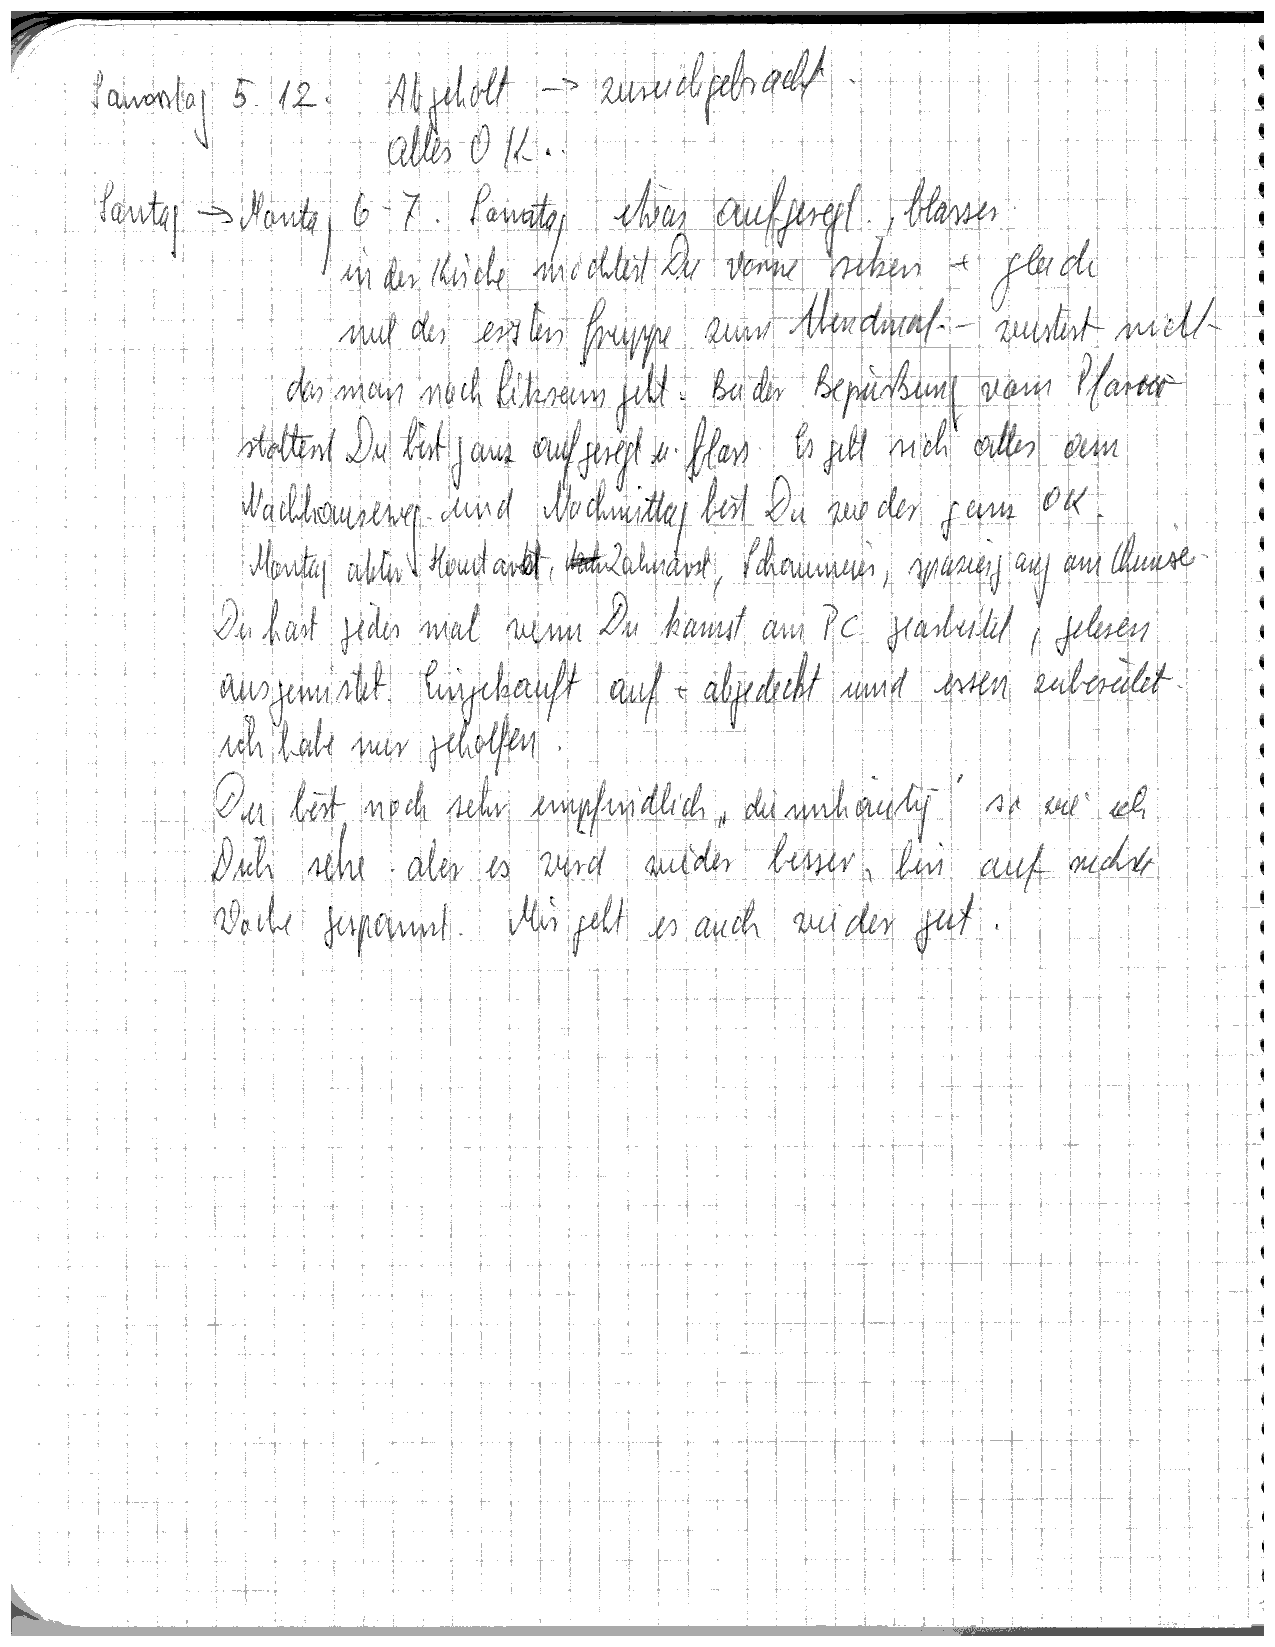 Samstag 5. 12. Abgeholt → zurückgebracht.
alles OK..
Sontag → Montag 6-7. Sonntag etwas aufgeregt, blasser
in der Kirche möchtest Du vorne sitzen + gleich
mit der ersten Gruppe zum Abendmal - nicht
das man nach geht. Bei der Begrüßung vom Pfarrer
Du bist ganz aufgeregt u. blass. Es gibt sich alles am
Nachhauseweg und Nachmittag bist Du wieder ganz OK.
Montag aktiv Hautarzt, Zahnarzt, spaziergang am
Du hast jedes mal wenn Du kamst am PC gearbeitet, gelesen
ausgemistet Eingekauft auf + abgedeckt und essen zubereitet.
ich habe nur geholfen.
Du bist noch sehr empfindlich „dünnhäutig" so wie ich
Dich sehe. aber es wird wieder besser, bin auf nächste
Woche gespannt. Mir geht es auch wieder gut.